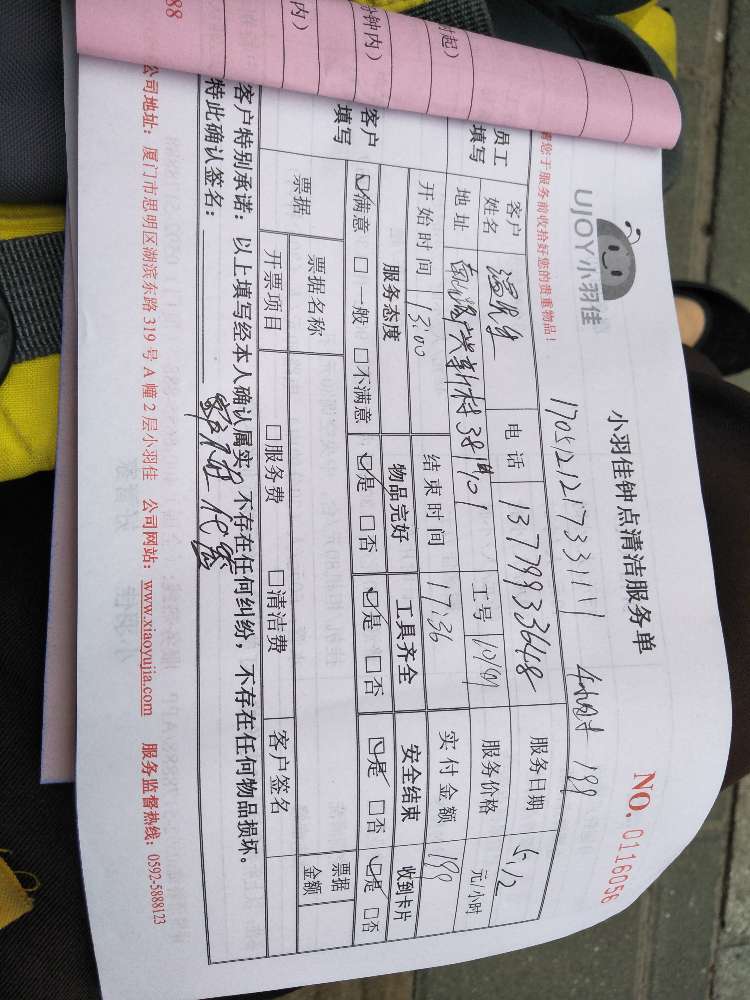 UJOY小羽佳
小羽佳钟点清洁服务单
NO. 0116056
您于服务前收拾好您的贵重物品！
员工填写
客户姓名
电话
13779933648
服务日期
5.12
地址
工号
服务价格
元/小时
开始时间
13:00
结束时间
17:36
实付金额
199
客户填写
服务态度
物品完好
工具齐全
安全结束
收到卡片
☑满意 □一般 □不满意
☑是 □否
☑是 □否
☑是 □否
☑是 □否
票据
票据名称
票据金额
开票项目
□服务费
□清洁费
客户签名
客户特别承诺：以上填写经本人确认属实，不存在任何纠纷，不存在任何物品损坏。
特此确认签名：
公司地址：厦门市思明区湖滨东路 319 号 A 幢 2 层小羽佳 公司网站：www.xiaoyujia.com 服务监督热线：0592-5888123
时起）
分钟内）
内）
88